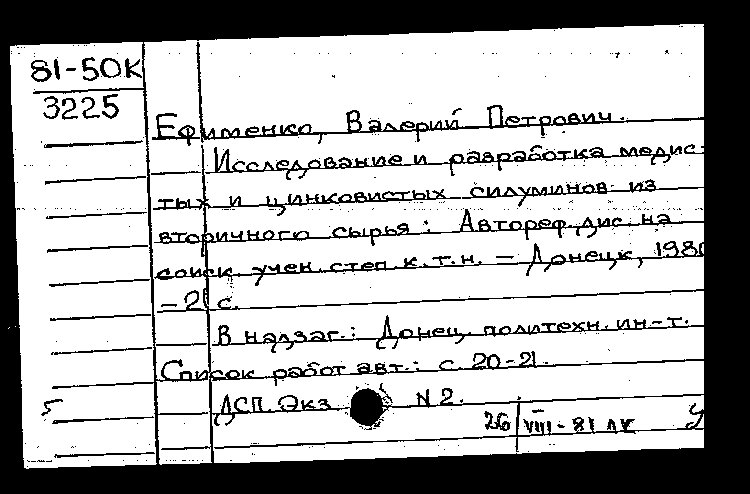 81-50К
3225
Ефименко, Валерий Петрович.
Исследование и разработка медис-
тых и цинковистых силуминов из
вторичного сырья: Автореф. дис. на
соиск. учен. степ. к.т.н. – Донецк, 1980
– 21 с.
В надзаг.: Донец. политехн. ин-т.
Список работ авт.: с. 20-21.
ДСП. Экз. N 2.
26/VIII-81